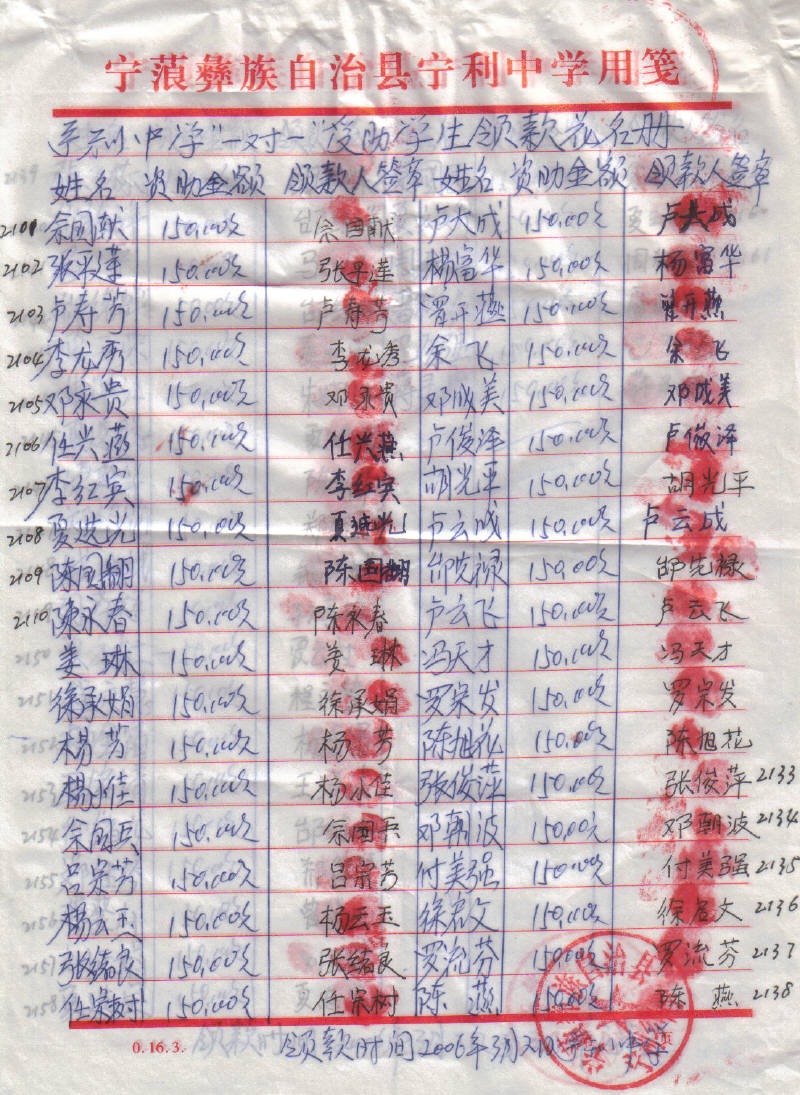 宁蒗彝族自治县宁利中学用笺
中学"一对一"受助学生领款花名册
姓名 资助金额 领款人签章 姓名 资助金额 领款人签章
2101 佘国献 150.00元 佘国献 卢大成 150.00元 卢大成
2102 张平莲 150.00元 张平莲 杨富华 150.00元 杨富华
2103 卢寿芳 150.00元 卢寿芳 开燕 150.00元 开燕
2104 李龙秀 150.00元 李龙秀 余飞 150.00元 余飞
2105 邓永贵 150.00元 邓永贵 邓成美 150.00元 邓成美
2106 任兴燕 150.00元 任兴燕 卢俊泽 150.00元 卢俊泽
2107 李红宾 150.00元 李红宾 胡光平 150.00元 胡光平
2108 夏光 150.00元 夏光 卢云成 150.00元 卢云成
2109 陈国翻 150.00元 陈国翻 邰先禄 150.00元 邰先禄
2110 陈永春 150.00元 陈永春 卢云飞 150.00元 卢云飞
姜琳 150.00元 姜琳 冯天才 150.00元 冯天才
徐承娟 150.00元 徐承娟 罗宗发 150.00元 罗宗发
杨芳 150.00元 杨芳 陈旭花 150.00元 陈旭花
杨小佳 150.00元 杨小佳 张俊萍 150.00元 张俊萍 2133
佘国兵 150.00元 佘国兵 邓朝波 150.00元 邓朝波 2134
吕宗芳 150.00元 吕宗芳 付美强 150.00元 付美强 2135
杨云玉 150.00元 杨云玉 徐君文 150.00元 徐君文 2136
张绪良 150.00元 张绪良 罗流芬 150.00元 罗流芬 2137
任宗树 150.00元 任宗树 陈燕 150.00元 陈燕 2138
0.16.3.
领款时间2006年3月2日